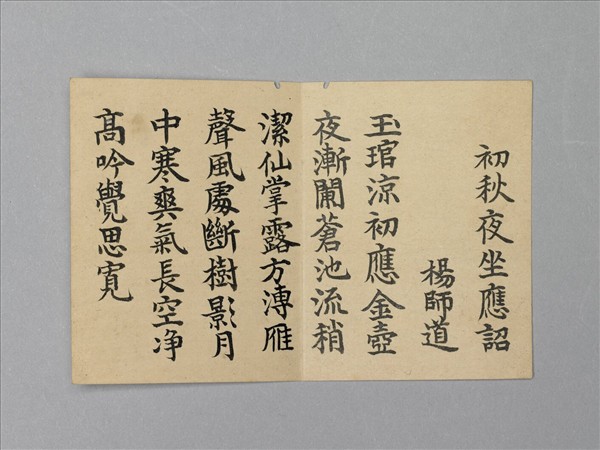 初秋夜坐應詔
楊師道
玉琯涼初應金壺
夜漸闌蒼池流稍
潔仙掌露方漙雁
聲風處斷樹影月
中寒爽氣長空净
高吟覺思寛